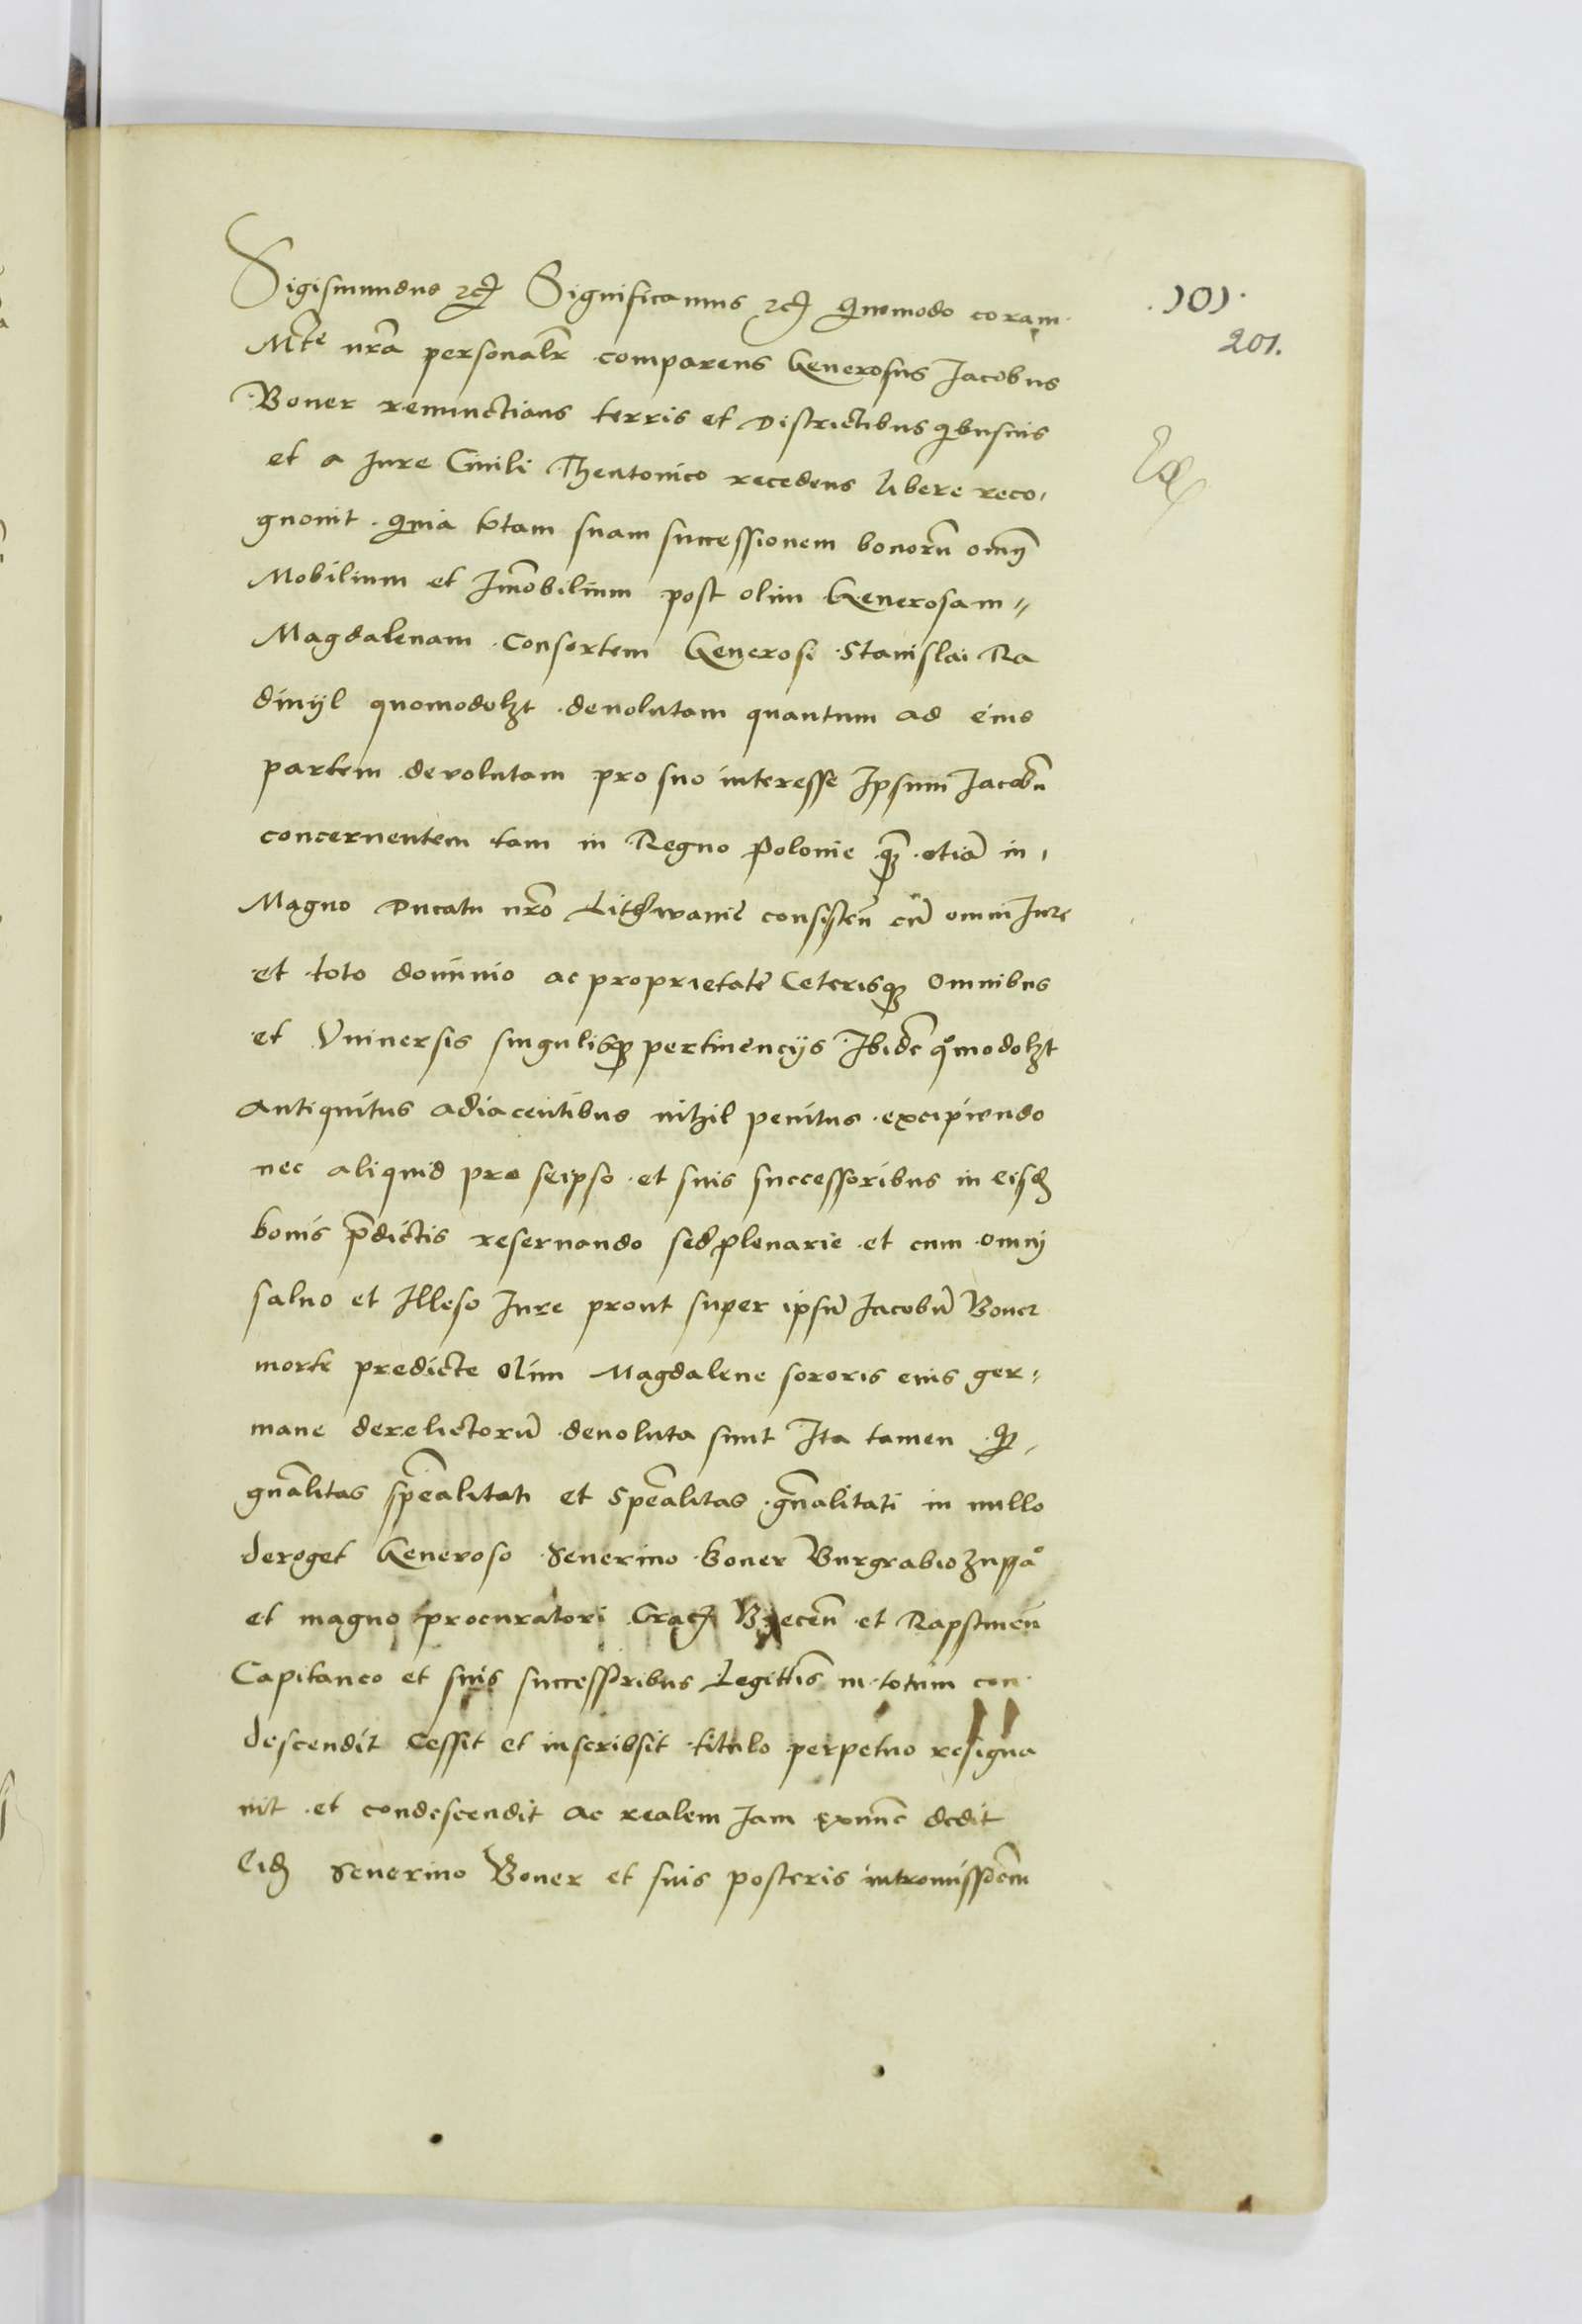 .101.
201.
Sigismundus etc̃ Significamus etc̃ Quomodo coram
Mte nr̃a personalr̃ comparens Generosus Jacobus
Boner renunctians terris et Districtibus qbusuis
et a Jure Ciuili Theutonico recedens libere reco,
gnouit quia totam suam successionem bonorũ omĩ
Mobilium et Jm̃obilium post olim Generosam
Magdalenam Consortem Generosi Stanislai Ra
dmyl quomodolzt deuolutam quantum ad eius
partem devolutam pro suo interesse Ipsum Jacobũ
concernentem tam in Regno Polonie qz̃ etiã in,
Magno Ducatu nr̃o Lithwanie consisteñ cũ omni Jure
et toto dominio ac proprietate Ceterisqz omnibus
et Vniuersis singulisqz pertinencijs Ibidẽ qomodolzt
Antiquitus adiacentibus nihil penitus excipiendo
nec aliquid pro seipso et suis successoribus in eisd̃
bonis p̃dictis reseruando sed plenarie et cum omnj
saluo et Illeso Jure prout super ipsũ Jacobũ Boner
morte predicte olim Magdalene sororis eius ger,
mane derelictorũ deuoluta sunt Ita tamen qz,
gñalitas spẽalitati et spẽalitas gñalitati in nullo
deroget Generoso Seuerino Boner Burgrabio Zuppao
et magno procuratori Crac̃ Bieceñ et Rapstineñ
Capitaneo et suis successoribus Legittĩs in totum con
descendit Cessit et inscribsit titulo perpetuo resigna
uit et condescendit ac realem Jam exnunc dedit
Eid̃ Seuerino Boner et suis posteris intromissioẽm